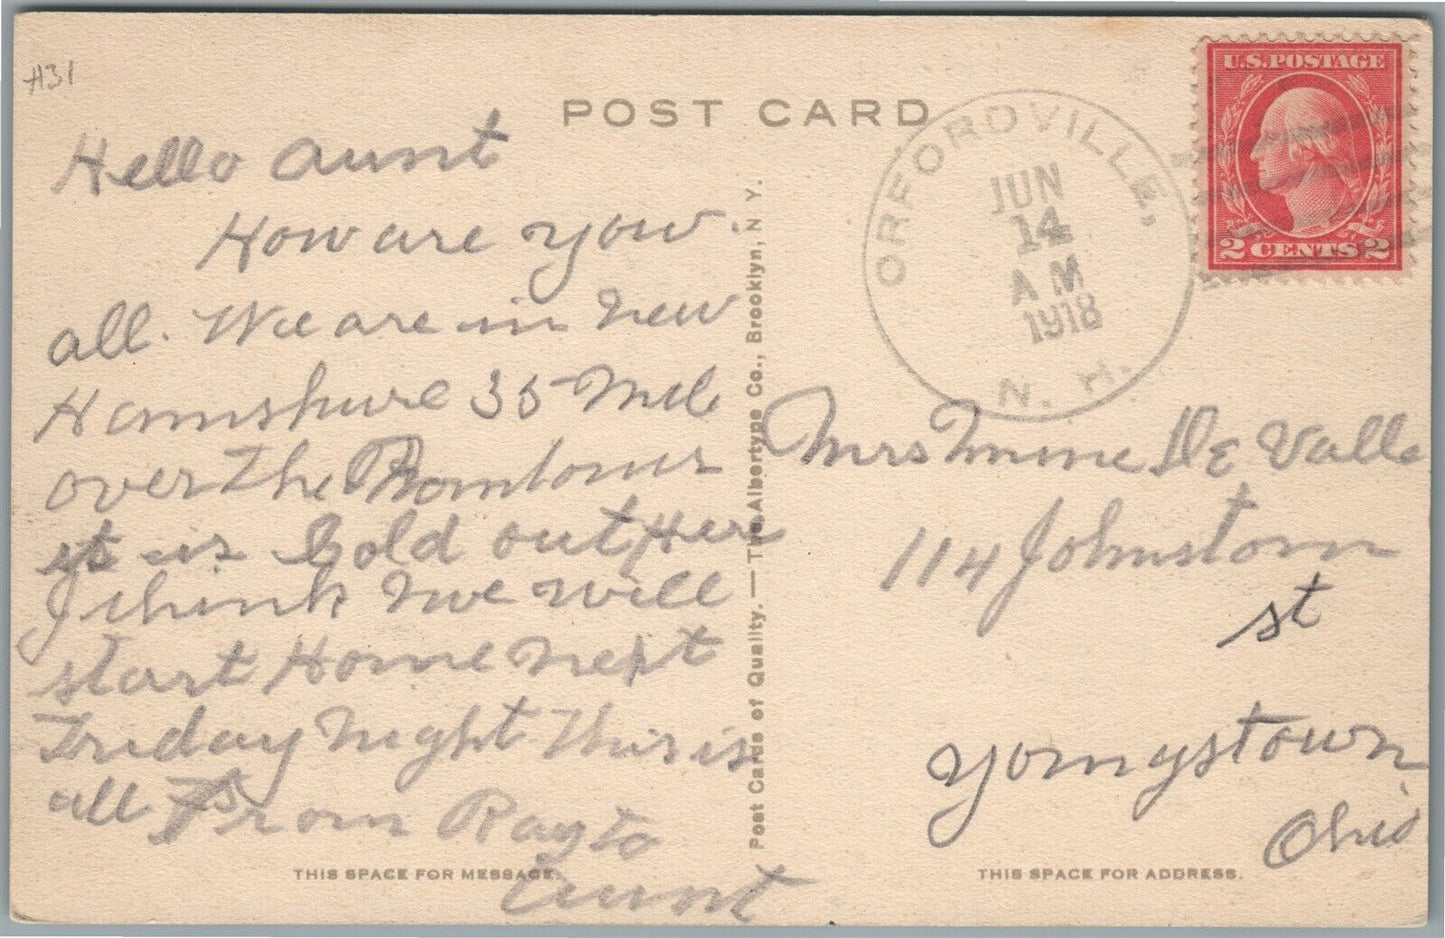 #31
POST CARD
Hello Aunt
How are you
all. We are in new
Hamshure 35 Mile
over the
it is Cold out Here
I think we will
start Home next
Friday Night This is
all From Ray to
Aunt
THIS SPACE FOR MESSAGE.
Post Cards of Quality. — The Albertype Co., Brooklyn, N. Y.
ORFORDVILLE,
JUN
14
AM
1918
N. H.
U.S. POSTAGE
2 CENTS 2
Mrs Minnie De Valle
114 Johnston
st
Yomgstown
Ohio
THIS SPACE FOR ADDRESS.